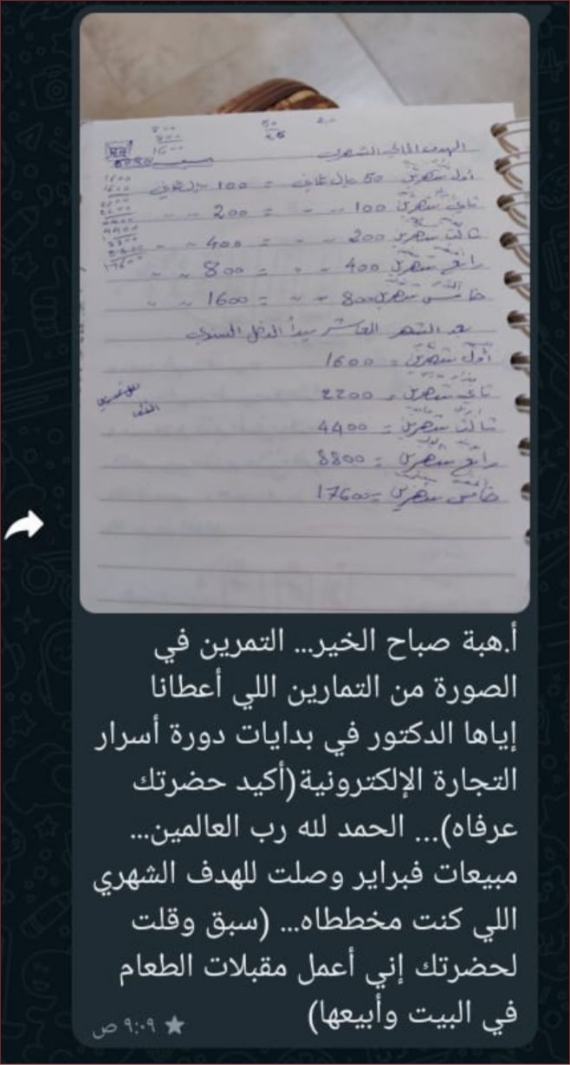 الهدف المالي الشهري
أول شهرين 50 ريال عماني = 100 ريال عماني
ثاني شهرين 100 " " = 200 " "
ثالث شهرين 200 " " = 400 " "
رابع شهرين 400 " " = 800 " "
خامس شهرين 800 " " = 1600 " "
بعد الشهر العاشر يبدأ الدخل السنوي
أول شهرين = 1600
ثاني شهرين = 2200
ثالث شهرين = 4400
رابع شهرين = 8800
خامس شهرين = 17600
أ.هبة صباح الخير... التمرين في
الصورة من التمارين اللي أعطانا
إياها الدكتور في بدايات دورة أسرار
التجارة الإلكترونية(أكيد حضرتك
عرفاه)... الحمد لله رب العالمين...
مبيعات فبراير وصلت للهدف الشهري
اللي كنت مخططاه... (سبق وقلت
لحضرتك إني أعمل مقبلات الطعام
في البيت وأبيعها)
٩:٠٩ ص